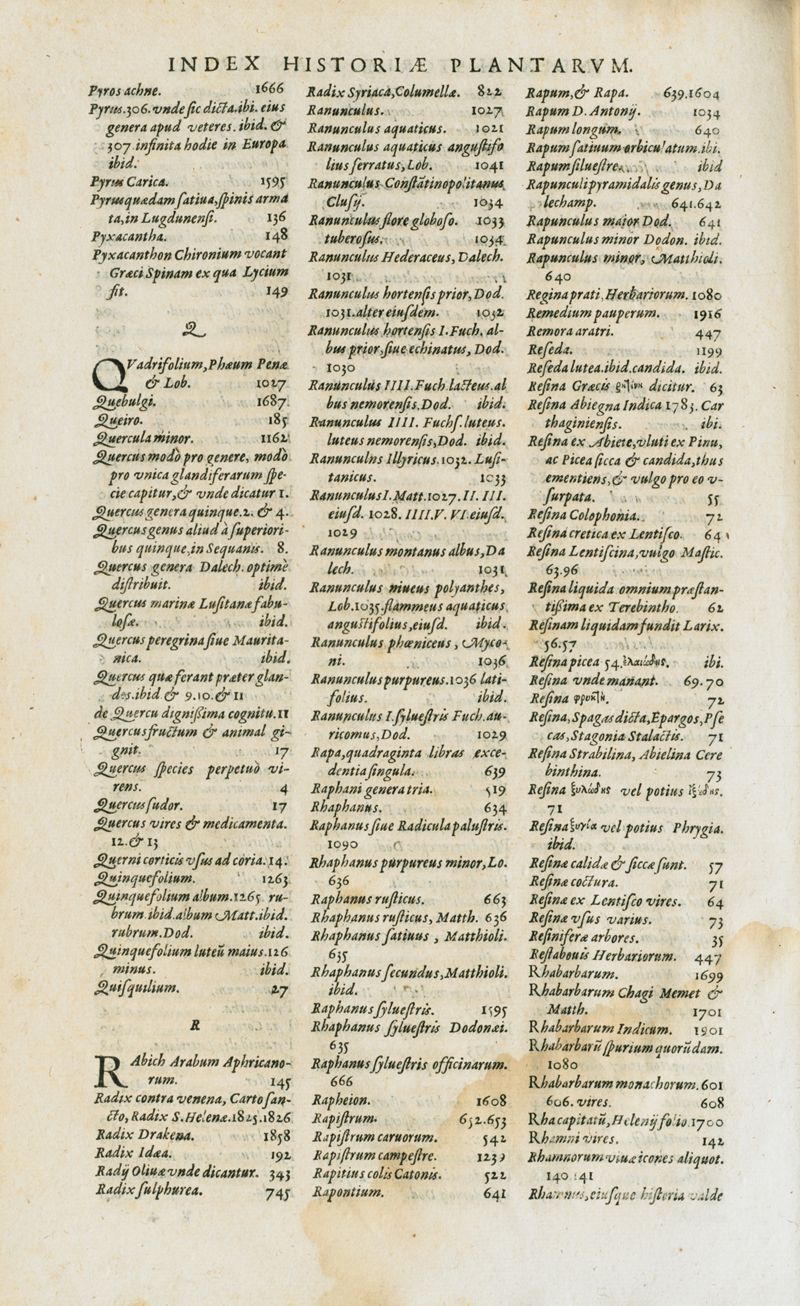 INDEX HISTORIÆ PLANTARVM.
Pyros achne. 1666
Pyrus.306.vnde sic dicta.ibi. eius
genera apud veteres. ibid. &
307 infinita hodie in Europa
ibid.
Pyrus Carica. 1595
Pyrus quædam satiua,spinis arma
ta,in Lugdunensi. 136
Pyxacantha. 148
Pyxacanthon Chironium vocant
Græci Spinam ex qua Lycium
fit. 149
Q
QVadrifolium,Phæum Penæ
& Lob. 1027
Quebulgi. 1687
Queiro. 185
Quercula minor. 1162
Quercus modò pro genere, modò
pro vnica glandiferarum spe-
cie capitur,& vnde dicatur 1.
Quercus genera quinque.2. & 4.
Quercus genus aliud à superiori-
bus quinque,in Sequanis. 8.
Quercus genera Dalech. optimè
distribuit. ibid.
Quercus marinæ Lusitanæ fabu-
losæ. ibid.
Quercus peregrina siue Maurita-
nica. ibid.
Quercus quæ ferant præter glan-
des.ibid & 9.10.& 11
de Quercu dignißima cognitu.11
Quercus fructum & animal gi-
gnit. 17
Quercus species perpetuò vi-
rens. 4
Quercus sudor. 17
Quercus vires & medicamenta.
12.& 13
Querni corticis vsus ad coria. 14.
Quinquefolium. 1263
Quinquefolium album.1265 ru-
brum.ibid.album Matt.ibid.
rubrum.Dod. ibid.
Quinquefolium luteū maius.126
minus. ibid.
Quisquilium. 27
R
RAbich Arabum Aphricano-
rum. 145
Radix contra venena, Carto san-
cto, Radix S.Helenæ.1825.1826
Radix Drakena. 1858
Radix Idæa. 192
Radij Oliuæ vnde dicantur. 343
Radix sulphurea. 745
Radix Syriaca,Columellæ. 822
Ranunculus. 1027
Ranunculus aquaticus. 1021
Ranunculus aquaticus angustifo
lius serratus, Lob. 1041
Ranunculus Constātinopolitanus
Clusij. 1034
Ranunculus flore globoso. 1033
tuberosus. 1034
Ranunculus Hederaceus, Dalech.
1031
Ranunculus hortensis prior, Dod.
1031.alter eiusdem. 1032
Ranunculus hortensis I.Fuch. al-
bus prior,siue echinatus, Dod.
1030
Ranunculus IIII.Fuch.lacteus.al
bus nemorensis.Dod. ibid.
Ranunculus IIII. Fuchs.luteus.
luteus nemorensis,Dod. ibid.
Ranunculns Illyricus.1032. Lusi-
tanicus. 1033
Ranunculus I.Matt.1027.II. III.
eiusd. 1028. IIII.V. VI.eiusd.
1029
Ranunculus montanus albus,Da
lech. 1031
Ranunculus niueus polyanthes,
Lob.1035.flammeus aquaticus
angustifolius,eiusd. ibid.
Ranunculus phœniceus, Myco-
ni. 1036
Ranunculus purpureus.1036 lati-
folius. ibid.
Ranunculus I.syluestris Fuch.au-
ricomus,Dod. 1029
Rapa,quadraginta libras exce-
dentia singula. 639
Raphani genera tria. 519
Rhaphanus. 634
Raphanus siue Radicula palustris.
1090
Rhaphanus purpureus minor, Lo.
636
Raphanus rusticus. 663
Rhaphanus rusticus, Matth. 636
Rhaphanus satiuus, Matthioli.
635
Rhaphanus secundus,Matthioli.
ibid.
Raphanus syluestris. 1595
Rhaphanus syluestris Dodonæi.
635
Raphanus syluestris officinarum.
666
Rapheion. 1608
Rapistrum. 652.653
Rapistrum caruorum. 542
Rapistrum campestre.
Rapitius colis Catonis. 522
Rapontium. 641
Rapum,& Rapa. 639.1604
Rapum D. Antonij. 1034
Rapum longum. 640
Rapum satiuum orbiculatum.ibi.
Rapum siluestre. ibid
Rapunculi pyramidalis genus, Da
lechamp. 641.642
Rapunculus maior Dod. 641
Rapunculus minor Dodon. ibid.
Rapunculus minor, Matthioli.
640
Regina prati Herbariorum. 1080
Remedium pauperum. 1916
Remora aratri. 447
Reseda. 1199
Reseda lutea.ibid.candida. ibid.
Resina Græcis ῥητίνη dicitur. 63
Resina Abiegna Indica 1783. Car
thaginiensis. ibi.
Resina ex Abiete,vluti ex Pinu,
ac Picea sicca & candida,thus
ementiens,& vulgo pro eo v-
surpata. 55
Resina Colophonia. 72
Resina cretica ex Lentisco. 64
Resina Lentiscina,vulgo Mastic.
63.96
Resina liquida omnium præstan-
tißima ex Terebintho. 62
Resinam liquidam fundit Larix.
56.57
Resina picea 54. ibi.
Resina vnde manant. 69.70
Resina 72
Resina, Spagas dicta,Epargos,Pse
cas,Stagonia Stalactis. 71
Resina Strabilina, Abielina Cere
binthina. 73
Resina ξυλώδης vel potius
71
Resina vel potius Phrygia.
ibid.
Resinæ calidæ & siccæ sunt. 57
Resinæ coctura. 71
Resinæ ex Lentisco vires. 64
Resinæ vsus varius. 73
Resiniferæ arbores. 35
Restabouis Herbariorum. 447
Rhabarbarum. 1699
Rhabarbarum Chagi Memet &
Matth. 1701
Rhabarbarum Indicum. 1901
Rhabarbarū spurium quorūdam.
1080
Rhabarbarum monachorum.601
606. vires. 608
Rha capitatū,Helenij folio.1700
Rhamni vires. 142
Rhamnorum viuæ icones aliquot.
140 141
Rhamnus,eiusque historia valde